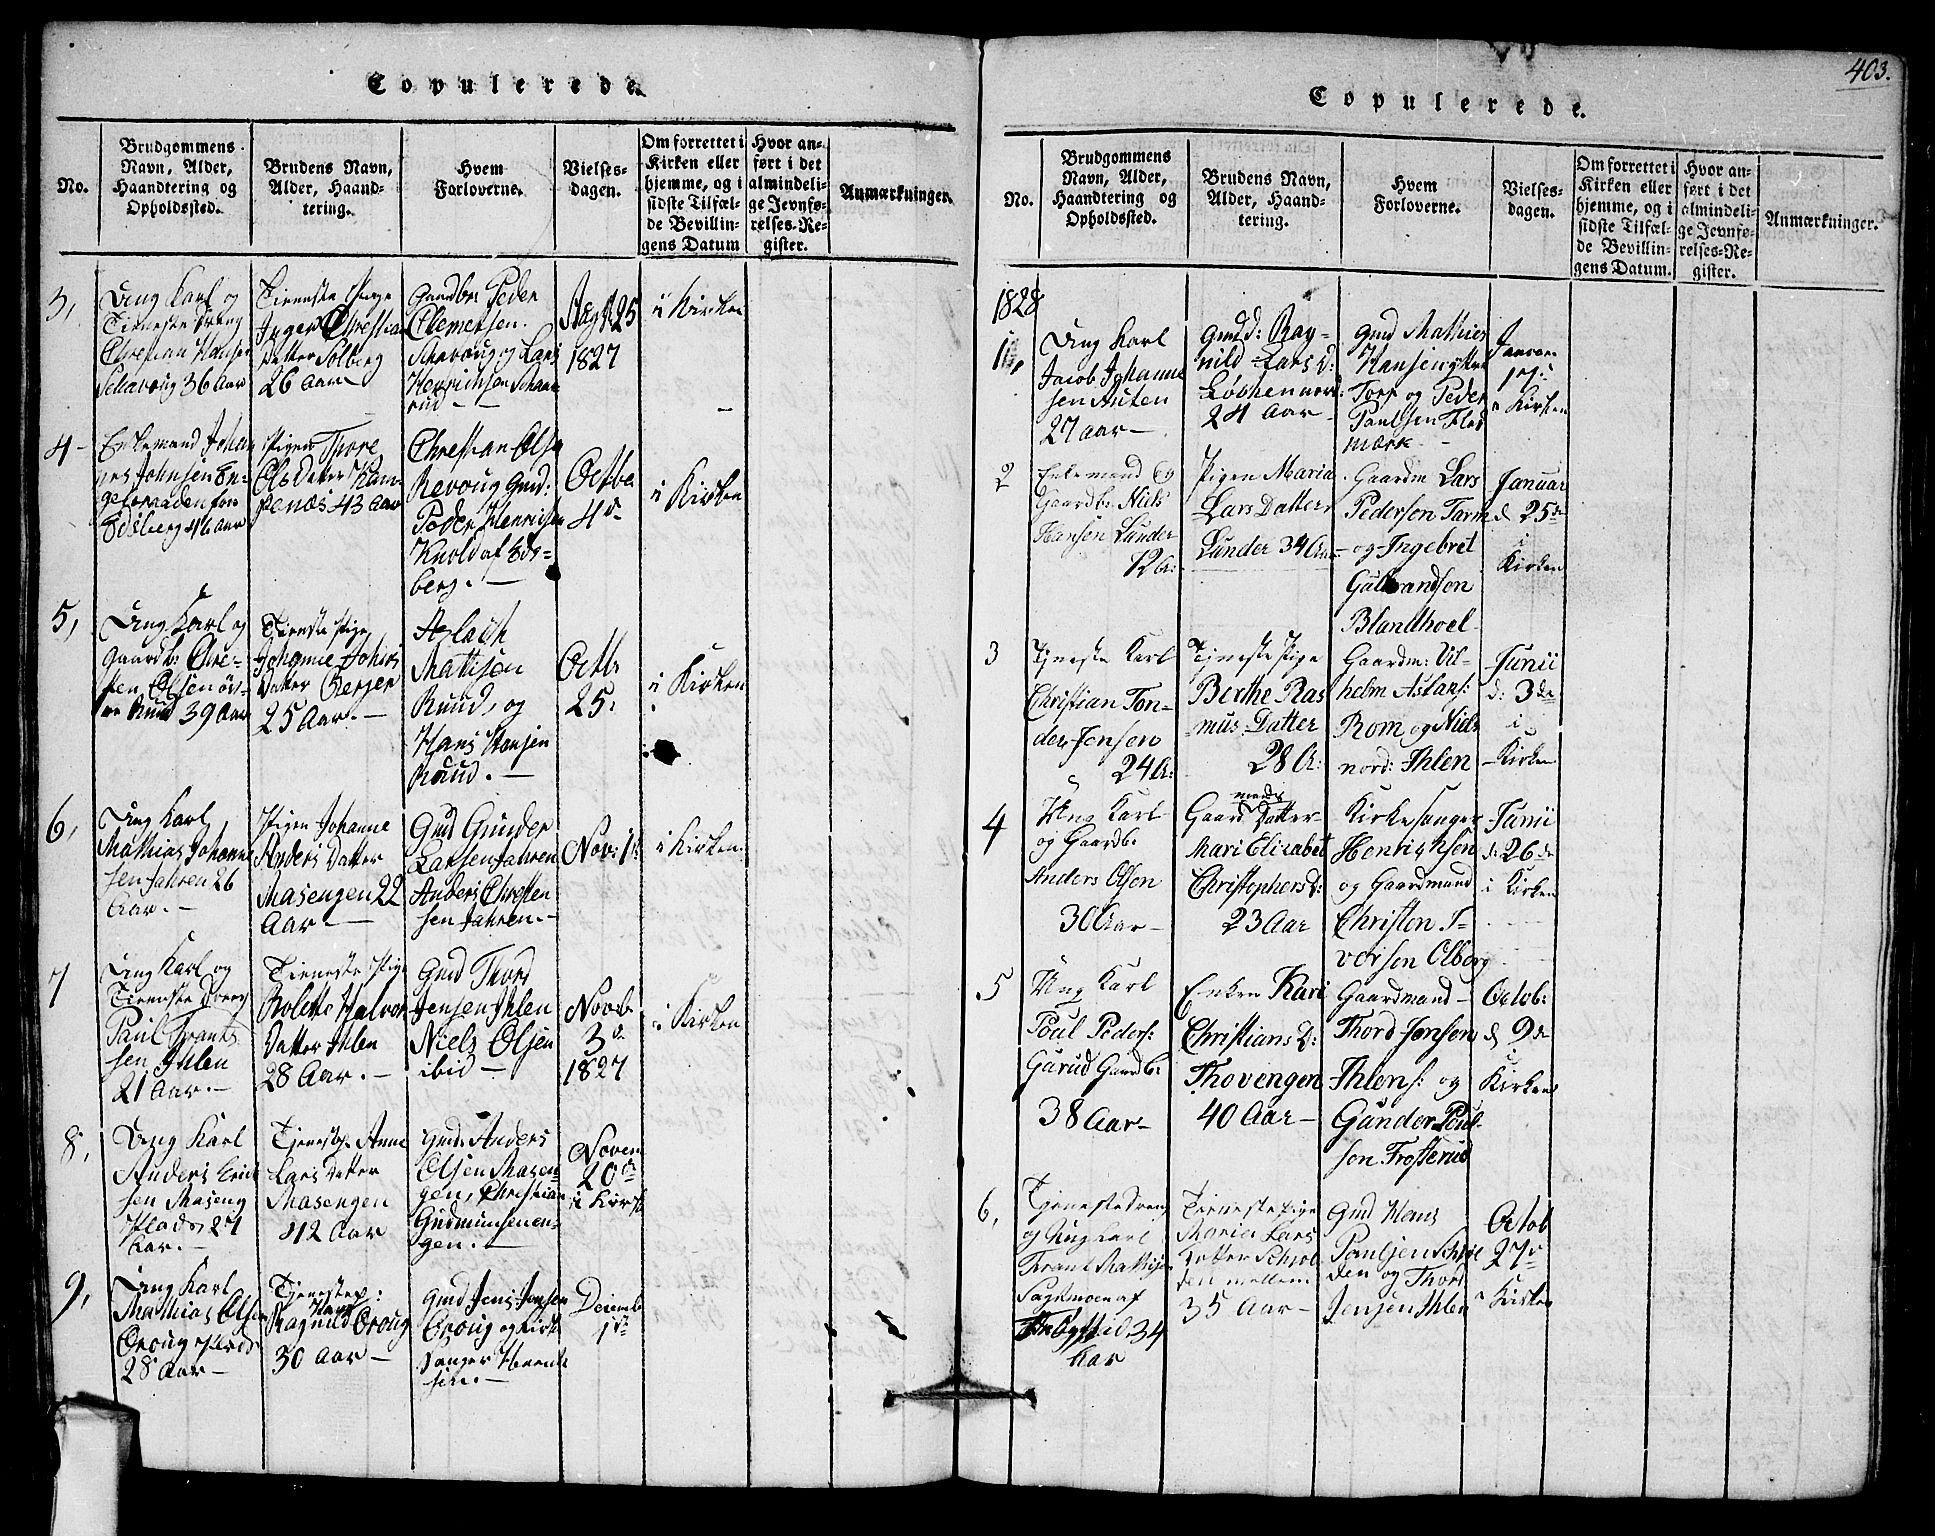 Copulerede.
No.
Brudgommens
Navn, Alder,
Haandtering og
Opholdssted.
Brudens Navn,
Alder, Haand-
tering.
Hvem
Forloverne.
Vielses-
dagen.
Om forrettet i
Kirken eller
hjemme, og i
sidste Tilfæl-
de Bevillin-
gens Datum
Hvor an-
ført i det
almindeli-
ge Jevnfø-
relses-Re-
gister.
Anmærkninger.
3,
Ung Karl og
Tieneste Dreng
Chrestian Hansen
36 Aar
Tieneste Pige
Inger Chrestian
Datter Solberg
26 Aar
Gaardbr Peder
Clemetsen
og Lars
Henrichsen
rud
Aug 25
1827
i Kirken
4
Enkemand Johan
nes Johnsen En-
gebraaden fra
Edsberg 46 Aar
Pigen Thore
Ols Datter
43 Aar
Chrestian Olse
Gmd:
Peder Henrichsen
Knold af Eds-
berg.
Octbr
4de
i Kirken
5,
Ung Karl og
Gaardb: Chre-
sten Olsen øv-
re Ruud 39 Aar
Tieneste Pige
Johanne Johns
Datter Berger
25 Aar.
Aslach
Mattisen
Ruud, og
Hans Hansen
Ruud.
Octbr
25:
i Kirken
6,
Ung Karl
Mathias Johanne
sen Jahren 26
Aar.
Pigen Johanne
Anders Datter
Masengen 22
Aar
Gmd Gunder
Larsen Jahren
Anders Chresten
sen Jahren.
Nov: 1te
i Kirken
7
Ung Karl og
Tieneste Dreng
Paul Frants
sen Ihlen
21 Aar.
Tieneste Pige
Bolette Halvor
Datter Ihlen
28 Aar.
Gmd Thord
Jensen Ihlen
Niels Olsen
ibid
Novbr
3de
1827
i Kirken
8,
Ung Karl
Anders Erich
sen Maseng
Plads 27
Aar.
Tjenestp. Anne
Lars Datter
Masengen
42 Aar
Gmd: Anders
Olsen Masen-
gen, Chrestian
Gudmunsen en-
gen.
Novem
20de
i Kirk
9,
Ung Karl
Mathias Olsen
Oroug Plads
28 Aar
Tjenestep:
Ragnild Hans Oroug
30 Aar
Gmd Jens Jonsen
Oroug og Kirke
Sanger Henrik
sen.
1te
403.
Copulerede.
No.
Brudgommens
Navn, Alder,
Haandtering og
Opholdssted.
Brudens Navn,
Alder, Haand-
tering.
Hvem
Forloverne.
Vielses-
dagen.
Om forrettet i
Kirken eller
hjemme, og i
sidste Tilfæl-
de Bevillin-
gens Datum.
Hvor an-
ført i det
almindeli-
ge Jevnfø-
relses-Re-
gister.
Anmærkninger.
1828
1,
Ung Karl
Jacob Johanne
sen Auten
27 Aar
Gmdd: Rag-
nild Lars d:
24 Aar
Gmd Mathies
Hansen
Torp og Peder
Paulsen Flad
mark
17:
i Kirken
2
Enkemand og
Gaardbr Niels
Hansen Lunder
72 A:
Pigen Maria
Lars Datter
Lunder 34 Aar
Gaardm Lars
Pedersen Tarm
og Ingebret
Gulbrandsen
Blandhoel
Januar
d 25de
i
Kirken
3
Tjeneste Karl
Christian Ton-
der Jensen
24 A:
Tjeneste Pige
Berthe Ras
mus-Datter
28 A:
Gaardm: Vil-
helm Aslaks:
Rom og Niels
nord: Ihlen
Junii
d: 3de
i
Kirken
4
Ung Karl
og Gaardbr
Anders Olsen
30 Aar
Gaardmands Datter
Mari Elisabet
Christophers D:
23 Aar
Kirkesanger
Henrichsen
og Gaardmand
Christen I-
versen Olberg
Junii
d: 26de
i Kirken
5
Ung Karl
Poul Peders:
Garud Gaardbr
38 Aar
Enken Kari
Christians D:
Thovengen
40 Aar
Gaardmand
Thord Jensen
Ihlens: og
Gunder Poul-
sen Frosterud
Octob:
d 9de
i
Kirken
6,
Tjeneste Dreng
og Ung Karl
Frant Mathisen
af
34
Aar
Tieneste Pige
Maria Lars
Datter
den mellem
35 Aar
Gmd Hans
Paulsen
den og Thord
Jensen Ihlen
Octob
27de
i Kirken